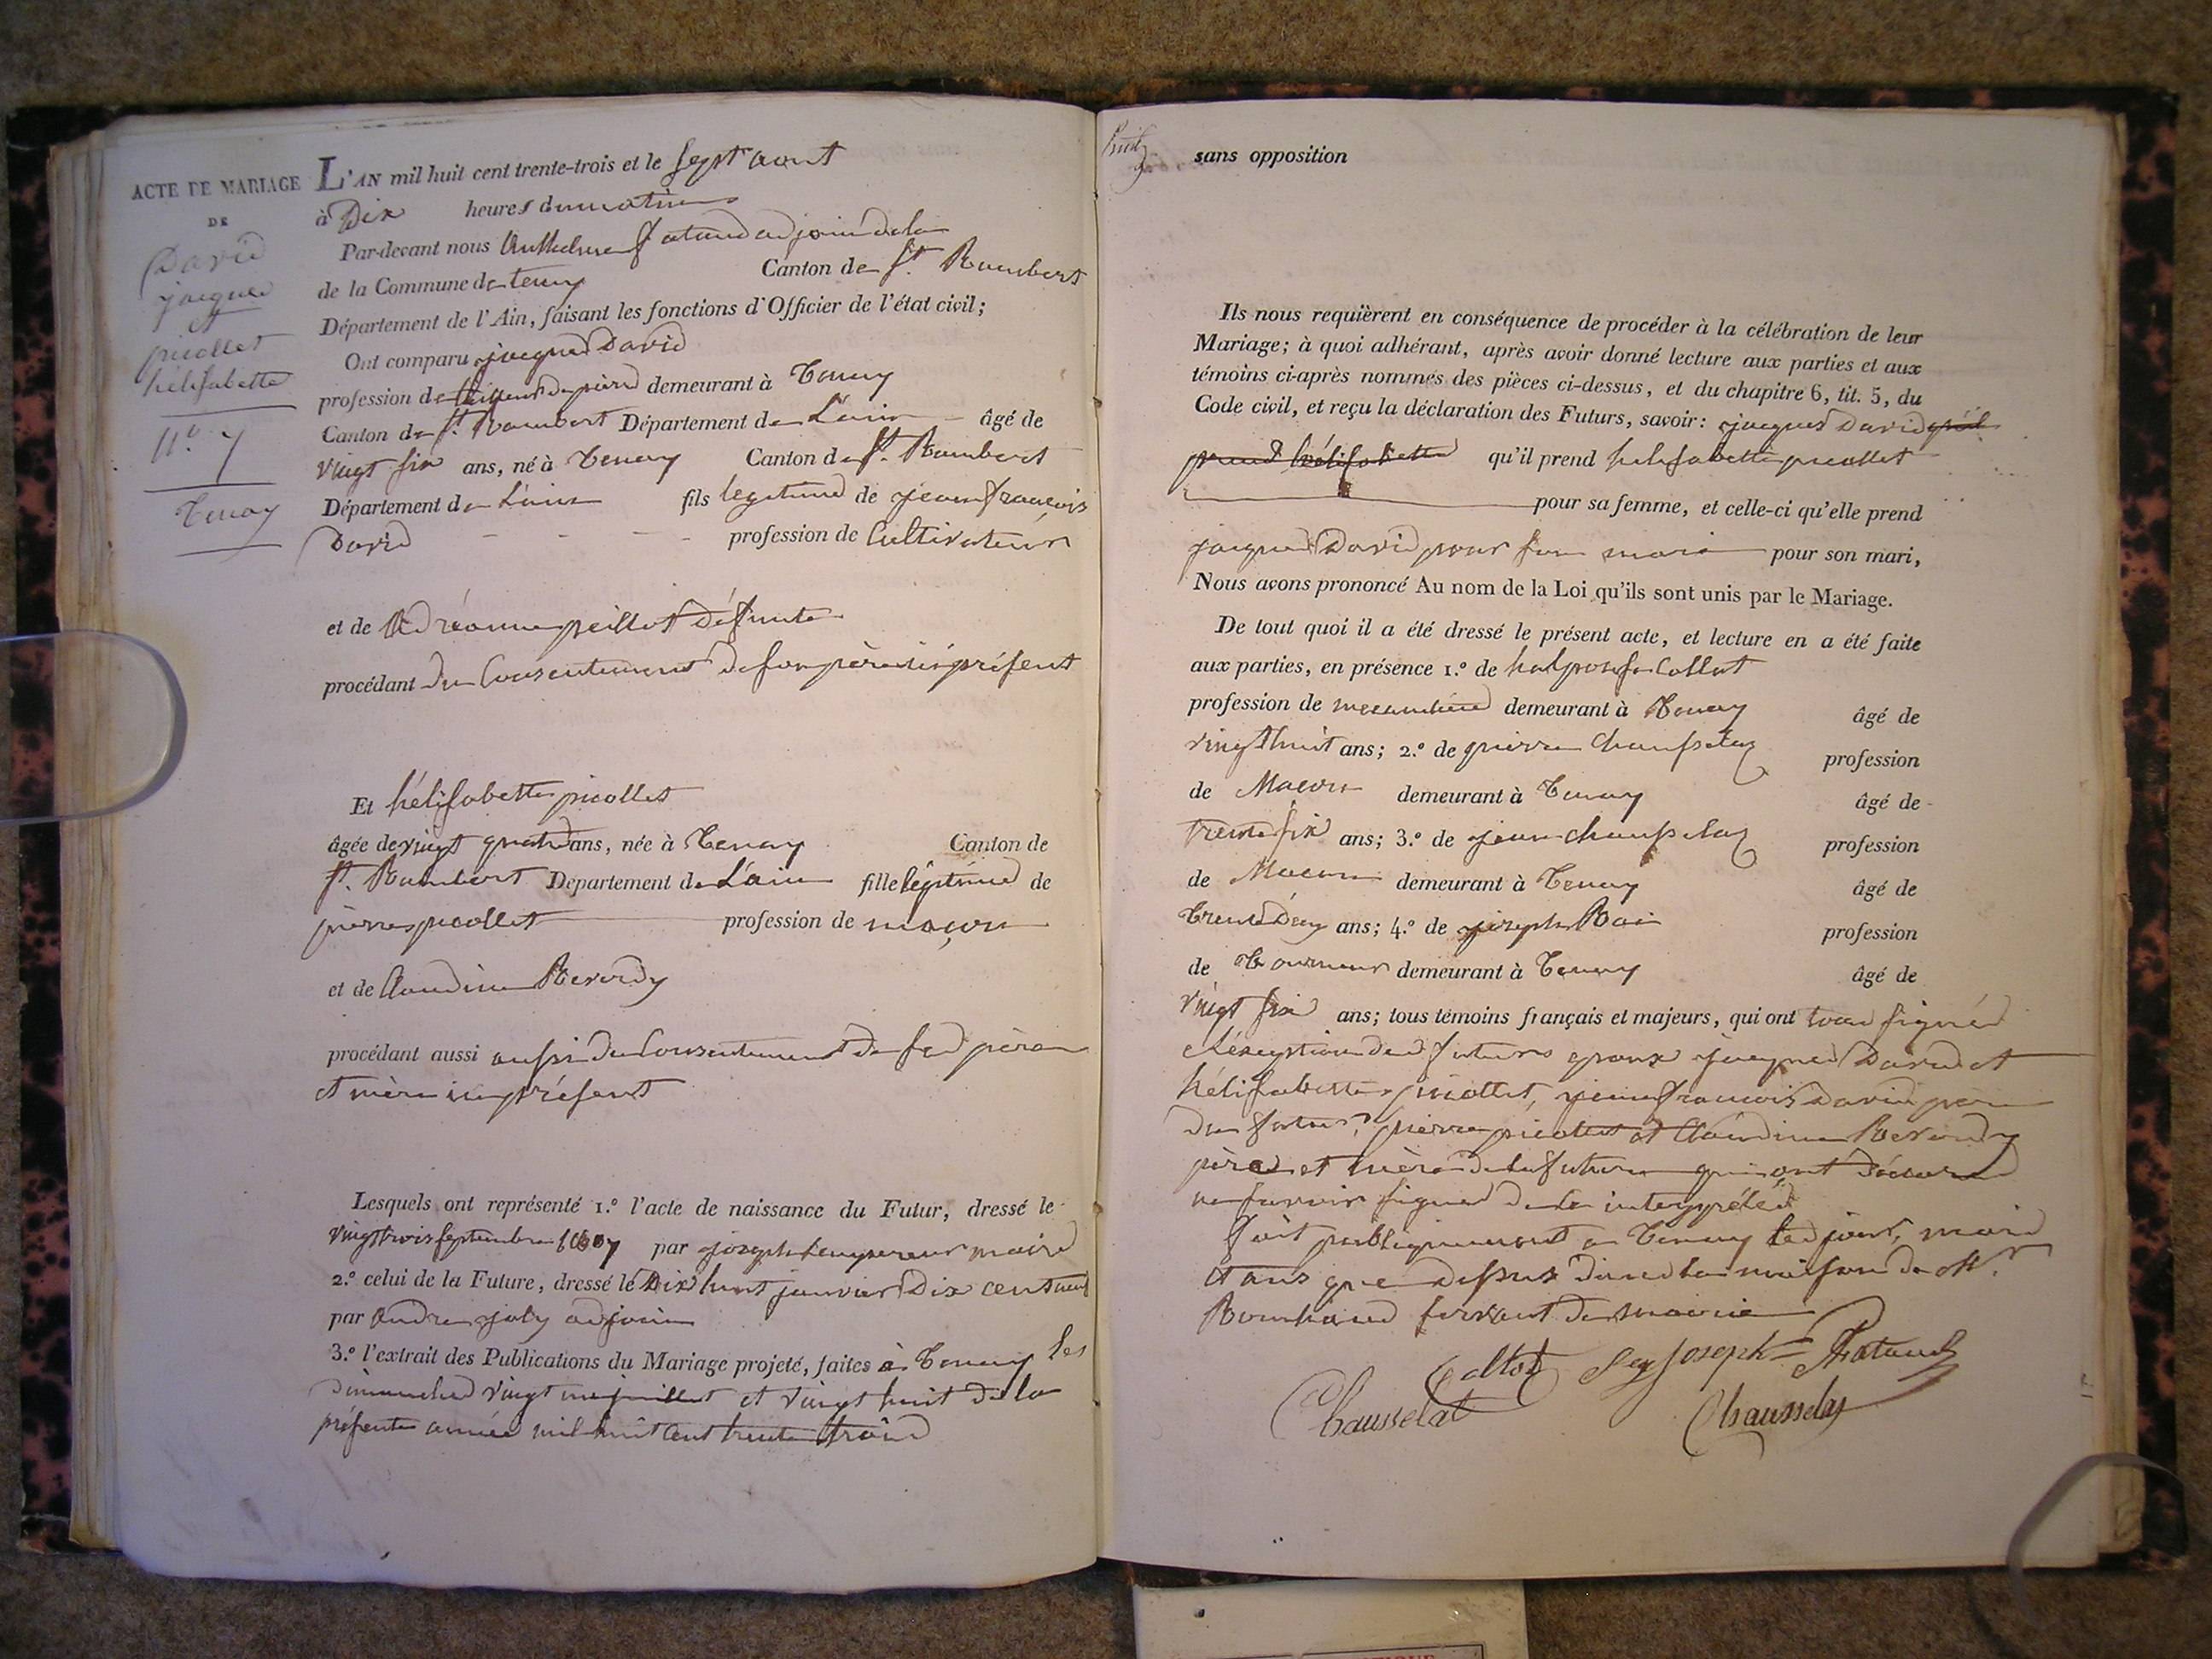 ACTE DE MARIAGE
DE
David
jacques
picollet
hélisabette
N.º 7
Tenay
L'AN mil huit cent trente-trois et le sept aout
à Dix heures du matin
Par-devant nous Anthelme fatand adjoint de la
de la Commune de tenay Canton de St. Rambert
Département de l'Ain, faisant les fonctions d'Officier de l'état civil;
Ont comparu jacques David
profession de tailleur de pierre demeurant à Tenay
Canton de St. Rambert Département de L'ain âgé de
vingt six ans, né à Tenay Canton de St. Rambert
Département de L'ain fils legitime de jean francois
David profession de Cultivateur
et de peillot défunte
procédant du Consentement de son père ici présent
Et hélisabette picollet
âgée de vingt quatre ans, née à Tenay Canton de
St. Rambert Département de L'ain fille légitime de
pierre picollet profession de maçon
et de Claudine Reverdy
procédant aussi aussi du Consentement de ses père
et mère ici présent
Lesquels ont représenté 1.º l'acte de naissance du Futur, dressé le
vingt trois septembre 1807 par joseph Lempereur maire
2.º celui de la Future, dressé le Dix huit janvier Dix cent neuf
par Andre joly adjoint
3.º l'extrait des Publications du Mariage projeté, faites à Tenay les
dimanches vingt un juillet et vingt huit de la
présente année mil huit cent trente trois
sans opposition
Ils nous requièrent en conséquence de procéder à la célébration de leur
Mariage; à quoi adhérant, après avoir donné lecture aux parties et aux
témoins ci-après nommés des pièces ci-dessus, et du chapitre 6, tit. 5, du
Code civil, et reçu la déclaration des Futurs, savoir: jacques David qu'il
prend hélisabette qu'il prend helisabette picollet
pour sa femme, et celle-ci qu'elle prend
jacques David pour son mari pour son mari,
Nous avons prononcé Au nom de la Loi qu'ils sont unis par le Mariage.
De tout quoi il a été dressé le présent acte, et lecture en a été faite
aux parties, en présence 1.º de Collot
profession de demeurant à Tenay âgé de
vingt huit ans; 2.º de pierre Chausselaz profession
de Macon demeurant à Tenay âgé de
trente six ans; 3.º de jean chausselaz profession
de Macon demeurant à Tenay âgé de
trente Deux ans; 4.º de joseph profession
de Tourneur demeurant à Tenay âgé de
vingt six ans; tous témoins français et majeurs, qui ont tous signés
éléxeption des futurs epoux jacques David et
hélisabette picollet, jean francois David père
du futur, pierre picollet et Claudine Reverdy
père et mère de la future qui ont déclaré
ne savoir signer de ce interpelés
fait publiquement a Tenay les jour, mois
et ans que dessus dans la maison de Mr.
servant de mairie
Collot Joseph Fatand
Chausselat Chausselas